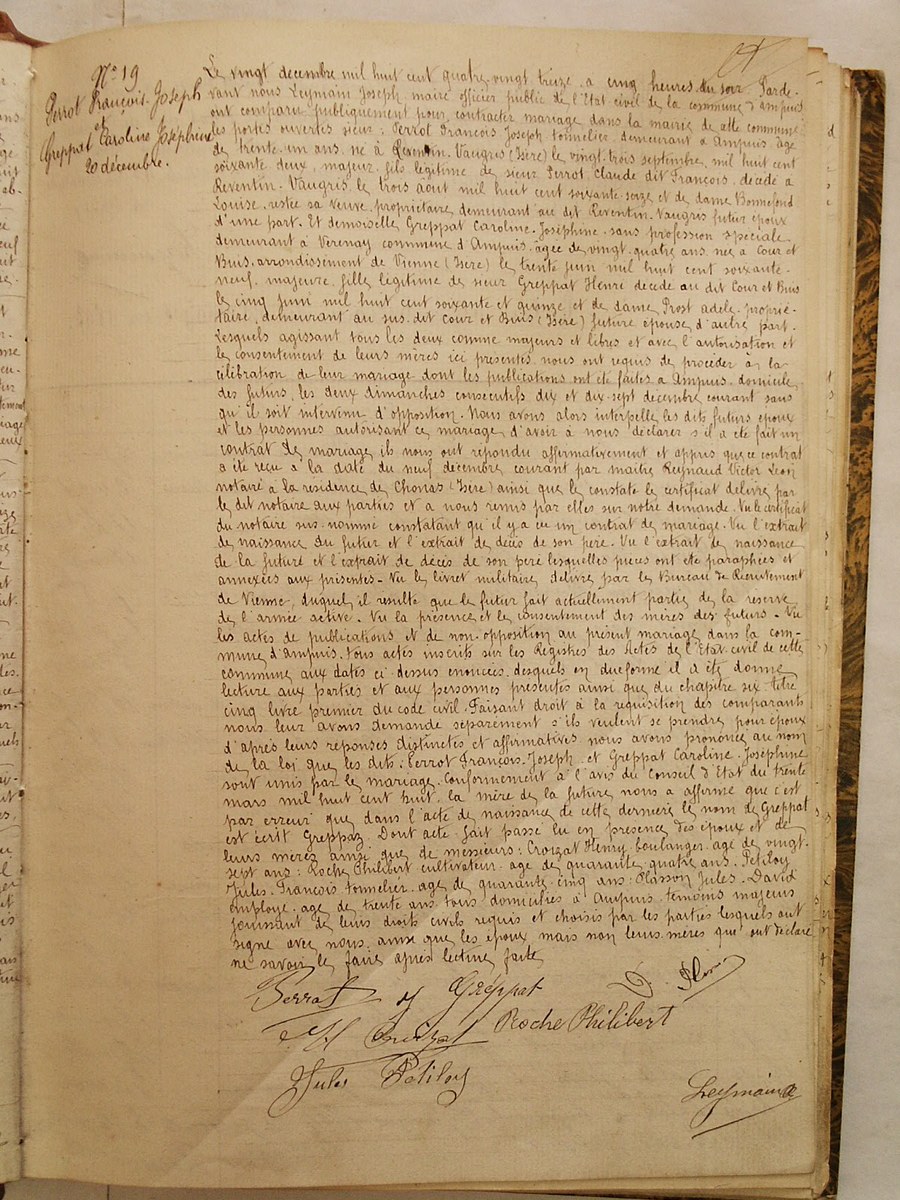 N° 19
Perrot François-Joseph
et
Greppat Caroline Joséphine
20 décembre.
Le vingt décembre mil huit cent quatre vingt treize à cinq heures du soir Parde-
vant nous Leymain Joseph, maire officier public de l'Etat civil de la commune d'Ampuis
ont comparu publiquement pour contracter mariage dans la mairie de dite commune
les portes ouvertes sieur : Perrot François Joseph tonnelier, demeurant à Ampuis, âgé
de trente un ans, né à Reventin-Vaugris (Isère) le vingt-trois septembre mil huit cent
soixante deux, majeur, fils légitime de sieur Perrot Claude dit François, décédé à
Reventin-Vaugris le trois août mil huit cent soixante-seize et de dame Bonnefond
Louise, restée sa veuve, propriétaire, demeurant au dit Reventin-Vaugris futur époux
d'une part. Et demoiselle Greppat Caroline-Joséphine sans profession spéciale
demeurant à Verenay commune d'Ampuis, âgée de vingt-quatre ans, née à Cour et
Buis, arrondissement de Vienne (Isère) le trente juin mil huit cent soixante-
neuf, majeure, fille légitime de sieur Greppat Henri décédé au dit Cour et Buis
le cinq juin mil huit cent soixante et quinze et de dame Prost adèle, proprié-
taire, demeurant au sus-dit Cour et Buis (Isère) future épouse, d'autre part.
Lesquels agissant tous les deux comme majeurs et libres et avec l'autorisation et
le consentement de leurs mères ici présentes, nous ont requis de procéder à la
célébration de leur mariage dont les publications ont été faites à Ampuis, domicile
des futurs, les deux dimanches consécutifs dix et dix-sept décembre courant sans
qu'il soit intervenu d'opposition. Nous avons alors interpellé les dits futurs époux
et les personnes autorisant ce mariage d'avoir à nous déclarer s'il a été fait un
contrat de mariage, ils nous ont répondu affirmativement et appris que ce contrat
a été reçu à la date du neuf décembre courant par maître Reynaud Victor Léon
notaire à la résidence de Chonas (Isère) ainsi que le constate le certificat délivré par
le dit notaire aux parties et a nous remis par elles sur notre demande. Vu le certificat
du notaire sus-nommé constatant qu'il y a eu un contrat de mariage. Vu l'extrait
de naissance du futur et l'extrait de décès de son père. Vu l'extrait de naissance
de la future et l'extrait de décès de son père lesquelles pièces ont été paraphées et
annexées aux présentes. Vu le livret militaire délivré par le Bureau de Recrutement
de Vienne, duquel il résulte que le futur fait actuellement partie de la réserve
de l'armée active. Vu la présence et le consentement des mères des futurs. Vu
les actes de publications et de non-opposition au présent mariage dans la com-
mune d'Ampuis. Tous actes inscrits sur les Registres des Actes de l'Etat civil de cette
commune aux dates ci-dessus énoncées desquels en due forme il a été donné
lecture aux parties et aux personnes présentes ainsi que du chapitre six titre
cinq livre premier du code civil. Faisant droit à la réquisition des comparants
nous leur avons demandé séparément s'ils veulent se prendre pour époux
d'après leurs réponses distinctes et affirmatives nous avons prononcé au nom
de la loi que les dits : Perrot François-Joseph et Greppat Caroline-Joséphine
sont unis par le mariage. Conformément à l'avis du Conseil d'Etat du trente
mars mil huit cent huit, la mère de la future nous a affirmé que c'est
par erreur que dans l'acte de naissance de cette dernière le nom de Greppat
est écrit Greppaz. Dont acte fait passé lu en présence des époux et de
leurs mères ainsi que de messieurs : Croizat Henry, boulanger âgé de vingt-
sept ans : Roche Philibert cultivateur âgé de quarante quatre ans. Petiloy
Jules-François tonnelier âgé de quarante-cinq ans : Plasson Jules-David
employé âgé de trente ans, tous domiciliés à Ampuis, témoins majeurs
jouissant de leurs droits civils requis et choisis par les parties lesquels ont
signé avec nous ainsi que les époux mais non leurs mères qui ont déclaré
ne savoir le faire après lecture faite
Perrot Greppat
H Croizat Roche Philibert
Jules Petiloy
Leymain